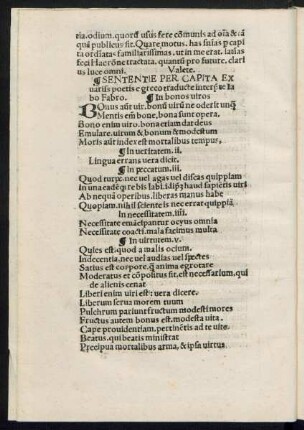 ria. odium. quorũ usus fere cõmunis ad oĩa & cã
qui publicus sit. Quare motus. has suas p capi
ta ordĩatas familiarissimas. ut in me erat. latias
feci Haec orone tractata. quantũ pro futurę. clari
us luce omni. Valete.
¶ SENTENTIE PER CAPITA EX
uariis poetis e greco traducte interp̃te Ia
bo Fabro. ¶ In bonos uiros
Bonus aut uir. bonũ uirũ ne oderit unq̃
Mentis em̃ bone, bona sunt opera.
Bono enim uiro. bona etiam dat deus
Emulare. uirum & bonum & modestum
Moris autindex est mortalibus tempus,
¶ In ueritatem. ii.
Lingua errans uera dicit.
¶ In peccatum. iii.
Quod turpe. nec uel agas uel discas quippiam
In una cæde q̃ te bis labi. idip̃s haud sapiẽtis uiri
Ab neq̃ua operibus. liberas manus habe
Quopiam. nihil scientẽ is nec errat quippiã
In necessitatem. iiii.
Necessitate emãcipantur ocyus omnia
Necessitate coacti. mala facimus multa
¶ In uirtutem. v.
Quies est. quod a malis ocium.
Indecentia, nec uel audias, uel spectes
Satius est corpore. q̃ anima egrotare
Moderatus et cõpositus sit. est necessarium. qui
de alienis cenat
Liberi enim uiri est: uera dicere.
Liberum serua morem tuum
Pulchrum pariunt fructum modesti mores
Fructus autem bonus est. modesta uita.
Cape prouidentiam. pertinẽtis ad te uite.
Beatus. qui beatis ministrat
Precipua mortalibus arma, & ipsa uirtus